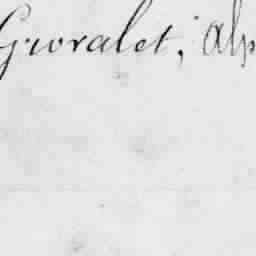 Givralet, Alp